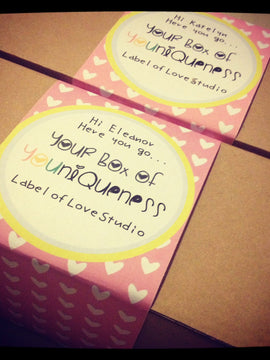 Hi Katelyn
Here you go...
YOUR BOX OF
YOUNiQUENESS
Label of Love Studio
Hi Eleanor
Here you go...
YOUR BOX OF
YOUNiQUENESS
Label of Love Studio